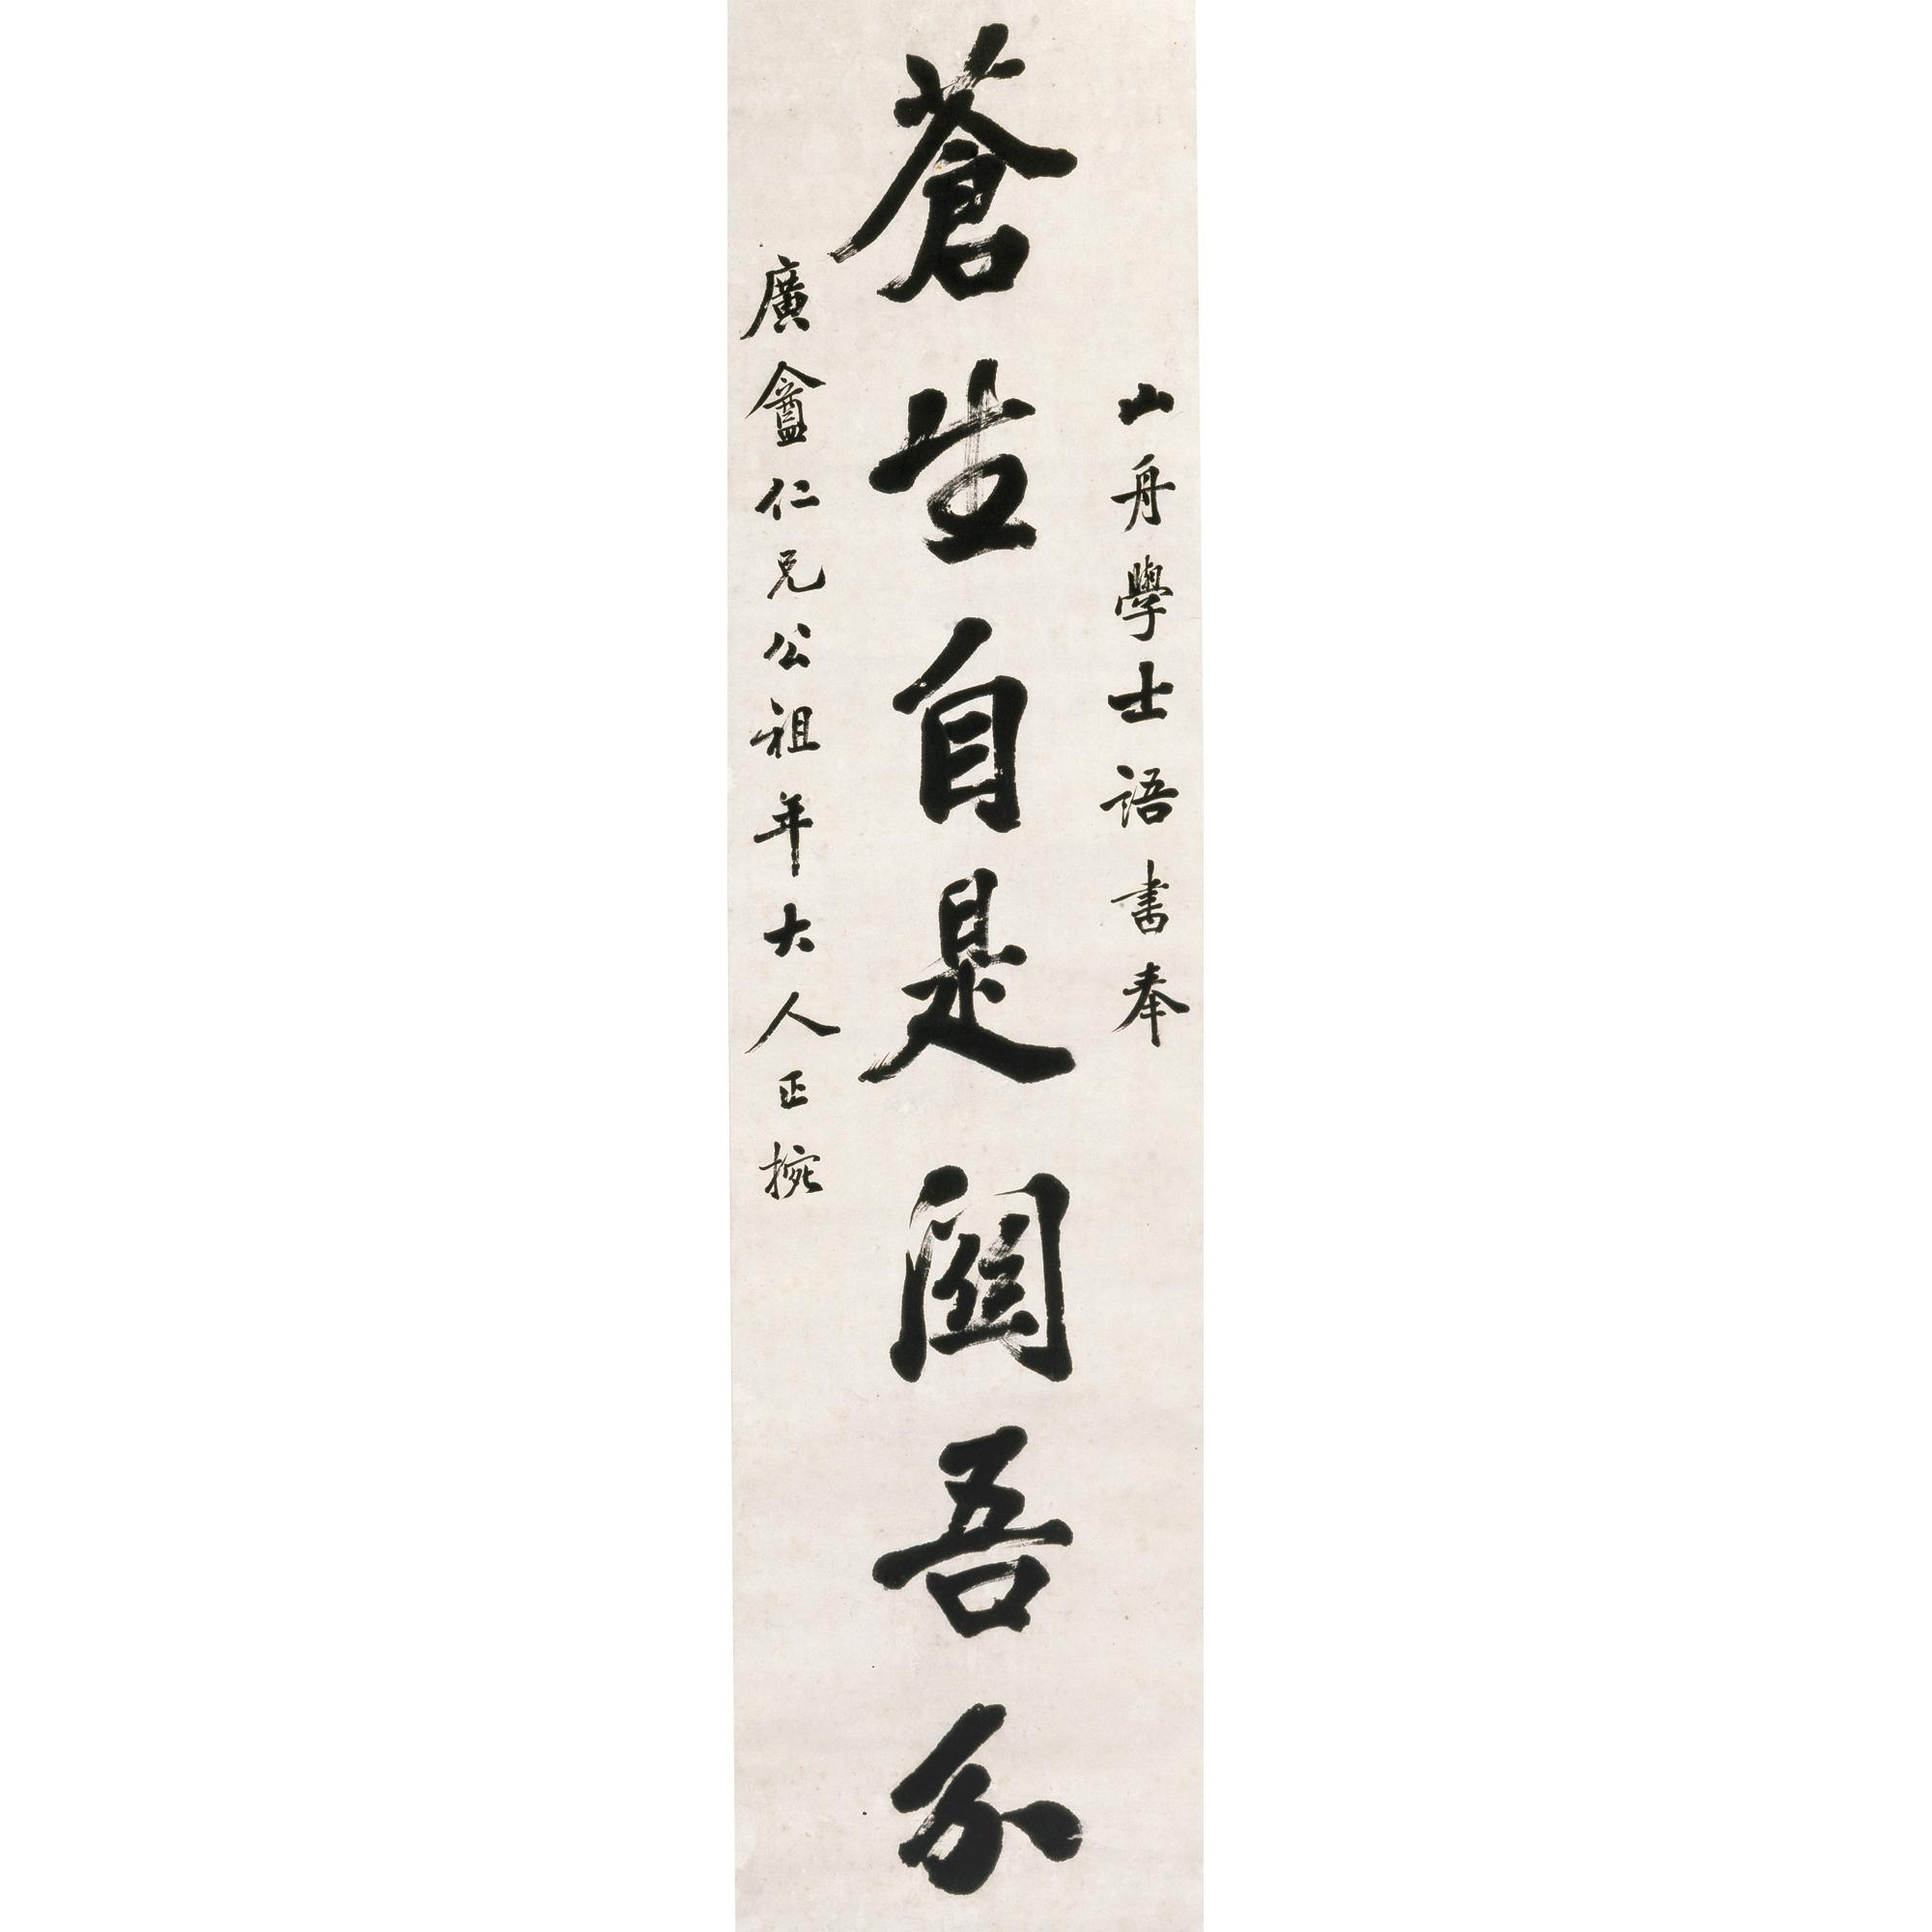 山舟學士語書奉
蒼生自是關吾分
廣盦仁兄公祖年大人正捥